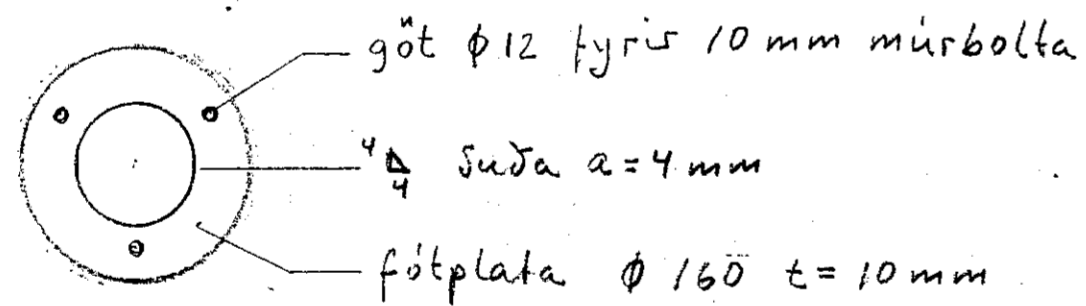 göt ϕ 12 fyrir 10 mm múrbolta
4 4 Suða a = 4 mm
fótplata ϕ 160 t = 10 mm